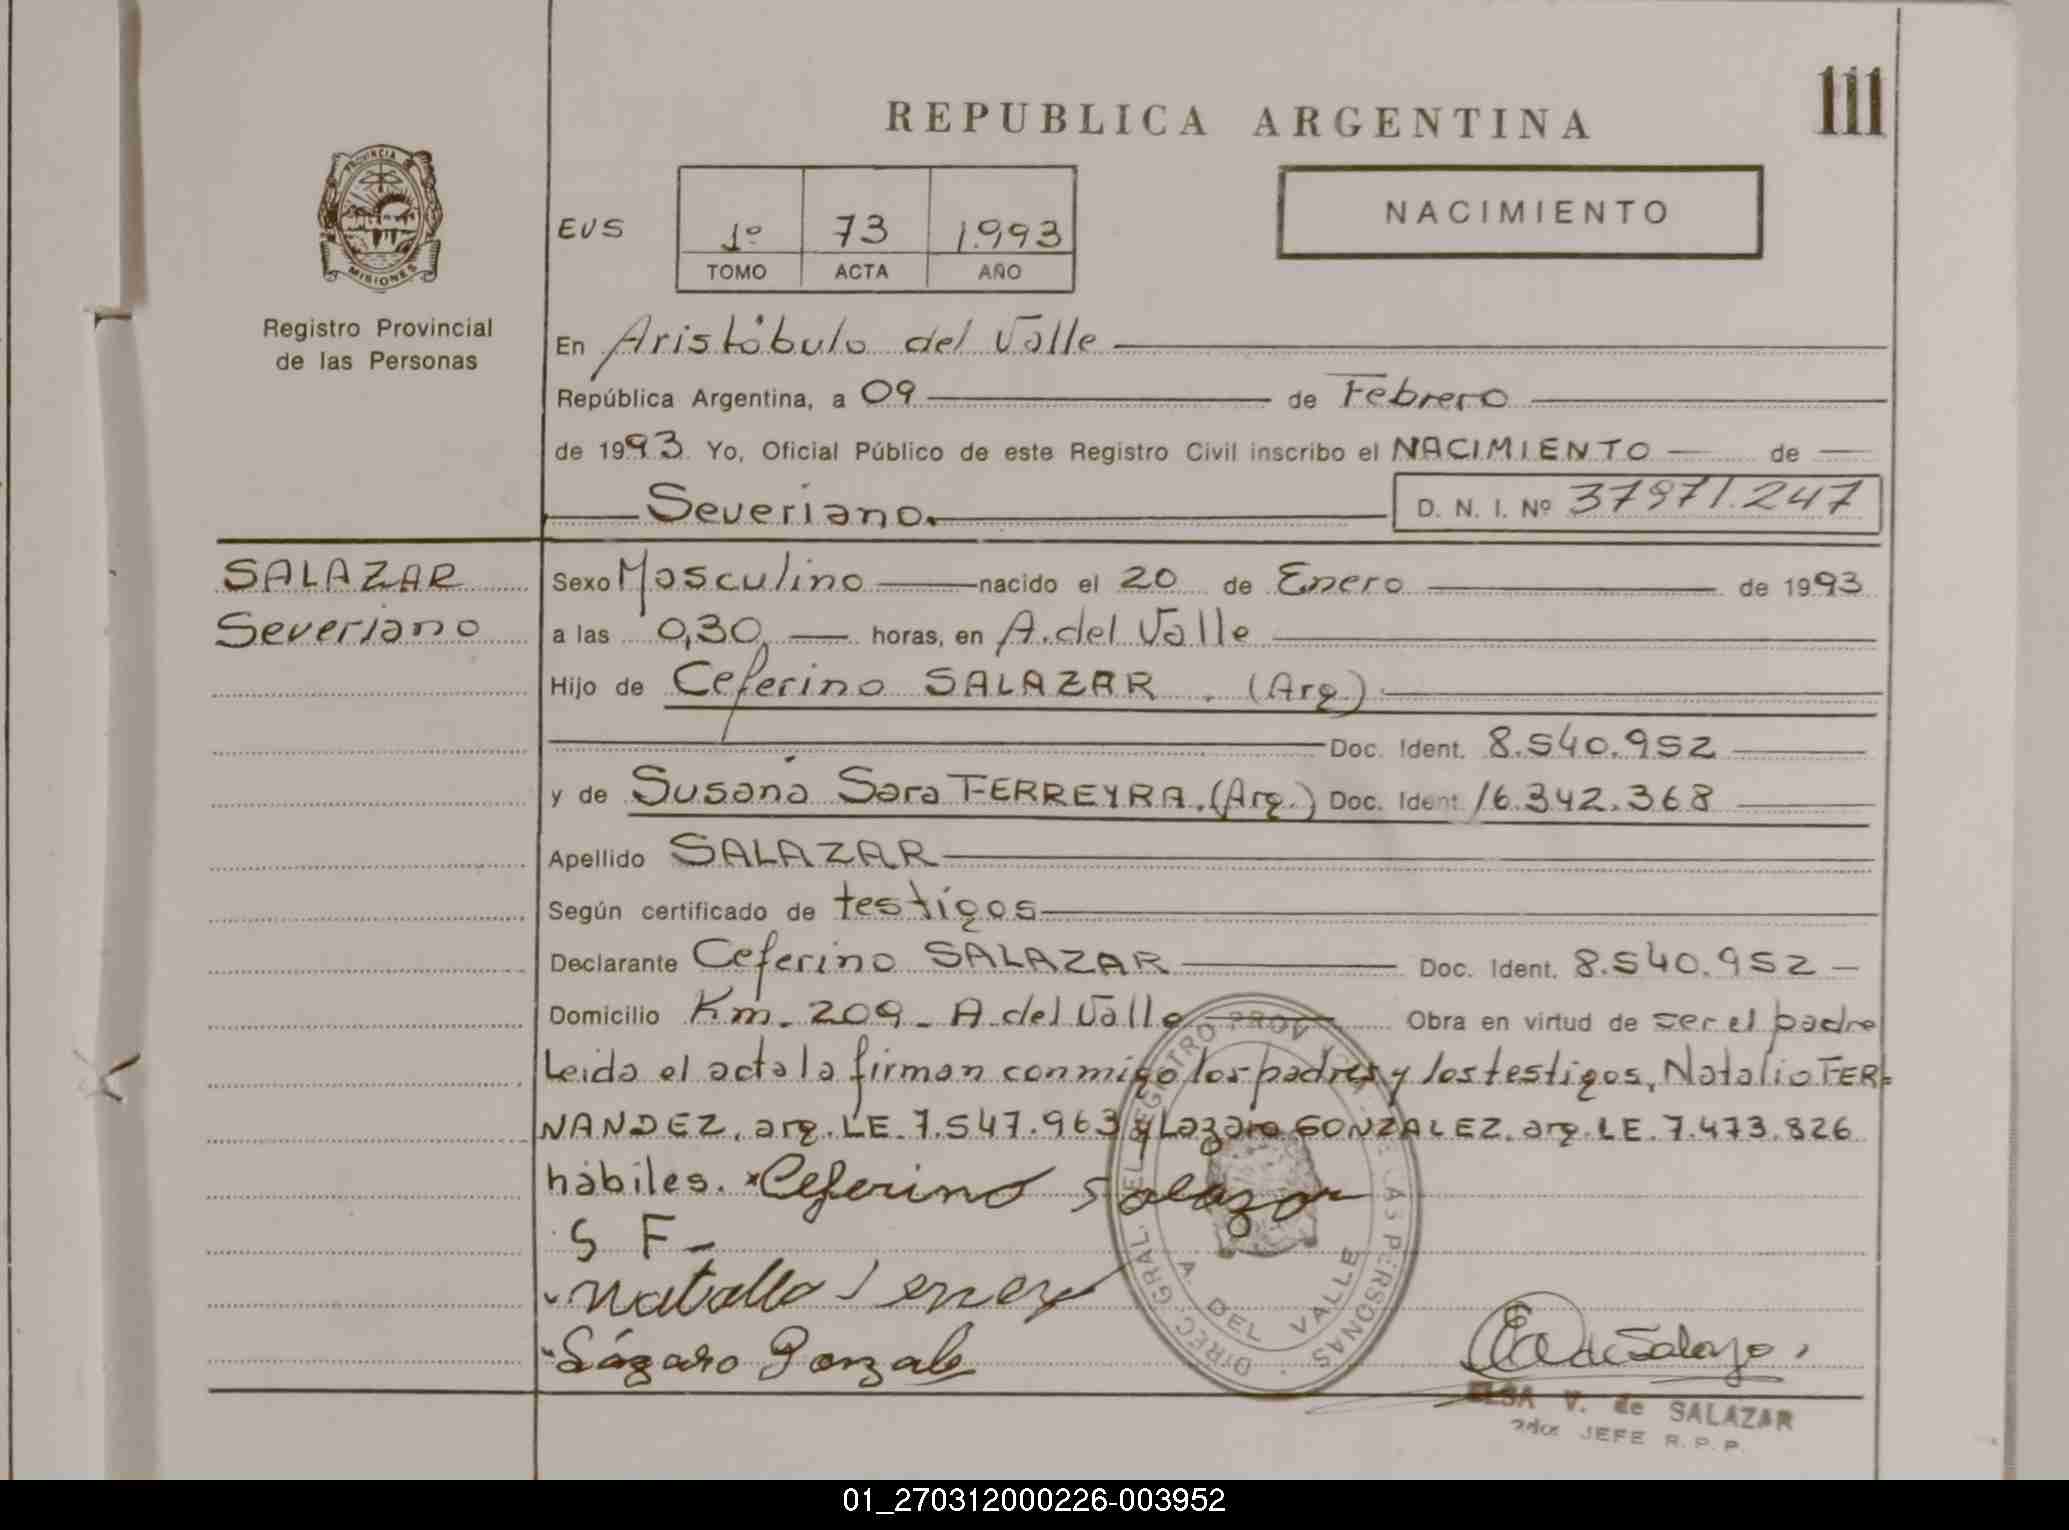 111
REPUBLICA ARGENTINA
PROVINCIA
MISIONES
Registro Provincial
de las Personas
EVS
1º 73 1993
TOMO ACTA AÑO
NACIMIENTO
En Aristóbulo del Valle
República Argentina, a 09 de Febrero
de 1993 Yo, Oficial Público de este Registro Civil inscribo el NACIMIENTO de
Severiano.
D. N. I. Nº 37971.247
SALAZAR
Severiano
Sexo Masculino nacido el 20 de Enero de 1993
a las 0,30 horas, en A. del Valle
Hijo de Ceferino SALAZAR. (Arg.)
Doc. Ident. 8.540.952
y de Susana Sara FERREYRA. (Arg.) Doc. Ident. 16.342.368
Apellido SALAZAR
Según certificado de testigos
Declarante Ceferino SALAZAR Doc. Ident. 8.540.952
Domicilio Km. 209 - A. del Valle Obra en virtud de ser el padre
Leida el acta la firman conmigo los padres y los testigos, Natalio FER=
NANDEZ. arg. LE. 7.547.963 y Lazaro GONZALEZ. arg. LE. 7.473.826
hábiles. x Ceferino Salazar
S F-
Lázaro Gonzale
DIREC. GRAL. DEL REGISTRO PROV. DE LAS PERSONAS
A. DEL VALLE
de Salazar
ELSA V. de SALAZAR
JEFE R. P. P.
01_270312000226-003952